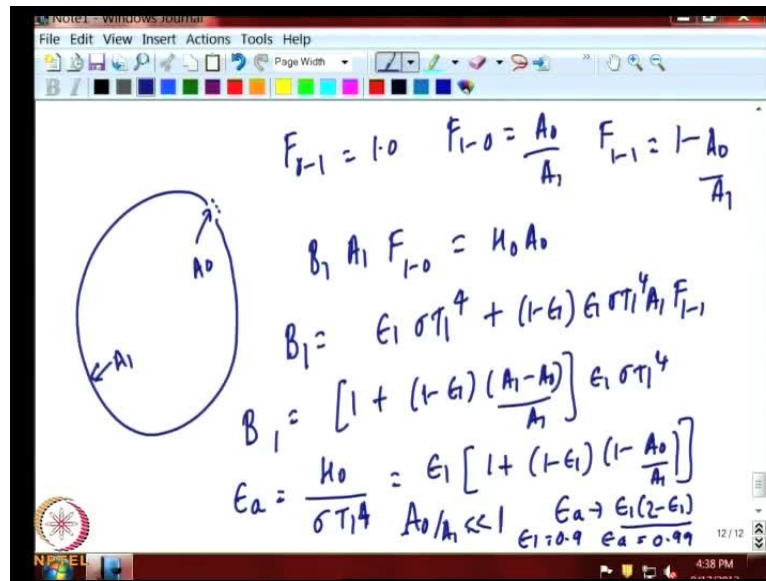 Note1 - Windows Journal
File Edit View Insert Actions Tools Help
Page Width
B I
F₀₋₁ = 1.0 F₁₋₀ = A₀/A₁ F₁₋₁ = 1 - A₀/A₁
A₀
B₁ A₁ F₁₋₀ = H₀ A₀
B₁ = ϵ₁ σT₁⁴ + (1-ϵ₁) ϵ₁ σT₁⁴ A₁ F₁₋₁
A₁
B₁ = [1 + (1-ϵ₁) (A₁-A₀)/A₁] ϵ₁ σT₁⁴
ϵa = H₀/σT₁⁴ = ϵ₁ [1 + (1-ϵ₁) (1- A₀/A₁)]
A₀/A₁ << 1 ϵa → ϵ₁(2-ϵ₁)
ϵ₁ = 0.9 ϵa = 0.99
12/12
NPTEL
4:38 PM